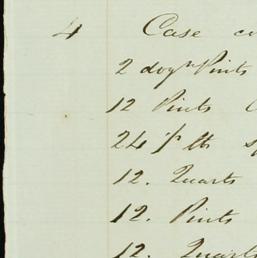 4 Case
2 dozn Pints
12 Pints
24 lb
12. Quarts
12. Pints
12. Quarts